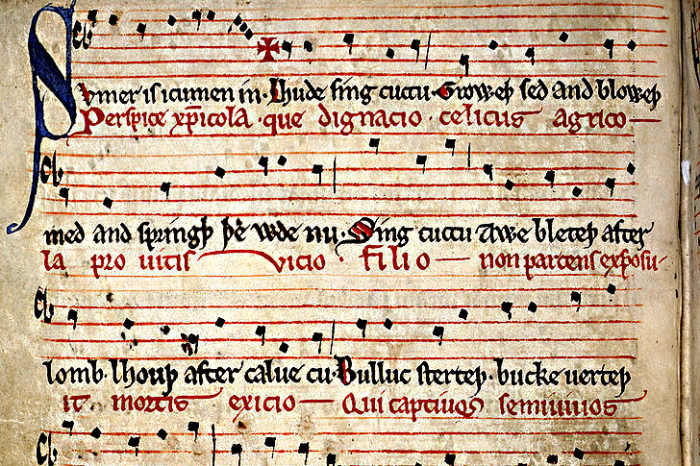 Svmer is icumen in. Lhude sing cuccu. Groweþ sed and bloweþ
Perspice xp̄icola. que dignacio. celicus agrico—
med and springþ þe wde nu. Sing cuccu Awe bleteþ after
la pro uitis vicio filio — non parcens exposu-
lomb. lhouþ after calue cu. Bulluc sterteþ. bucke uerteþ
it mortis exicio — Qui captiuos semiuiuos